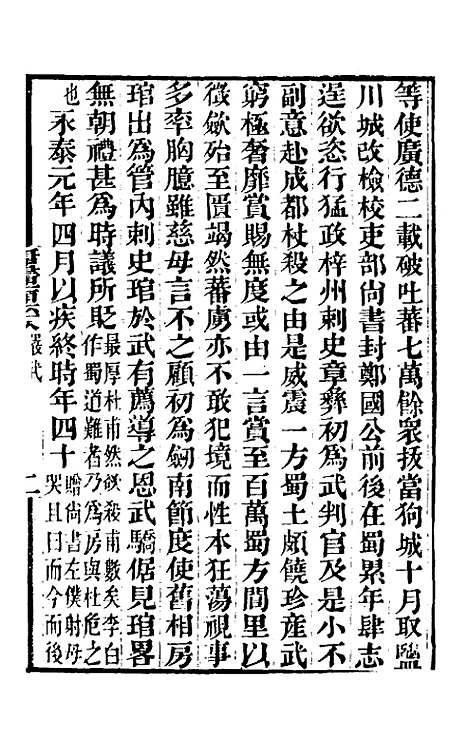 等使廣德二載破吐蕃七萬餘衆拔當狗城十月取鹽
川城改檢校吏部尚書封鄭國公前後在蜀累年肆志
逞欲恣行猛政梓州刺史章彝初爲武判官及是小不
副意赴成都杖殺之由是威震一方蜀土頗饒珍産武
窮極奢靡賞賜無度或由一言賞至百萬蜀方閭里以
徵斂殆至匱竭然蕃虜亦不敢犯境而性本狂蕩視事
多率胸臆雖慈母言不之顧初爲劒南節度使舊相房
琯出爲管內刺史琯於武有薦導之恩武驕倨見琯畧
無朝禮甚爲時議所貶最厚杜甫然欲殺甫數矣李白作蜀道難者乃爲房與杜危之
也永泰元年四月以疾終時年四十贈尚書左僕射母哭且曰而今而後
嚴武
二